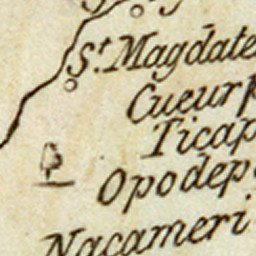 St. Magdãle
Cueurp
Ticap
Opodep
Nacameri